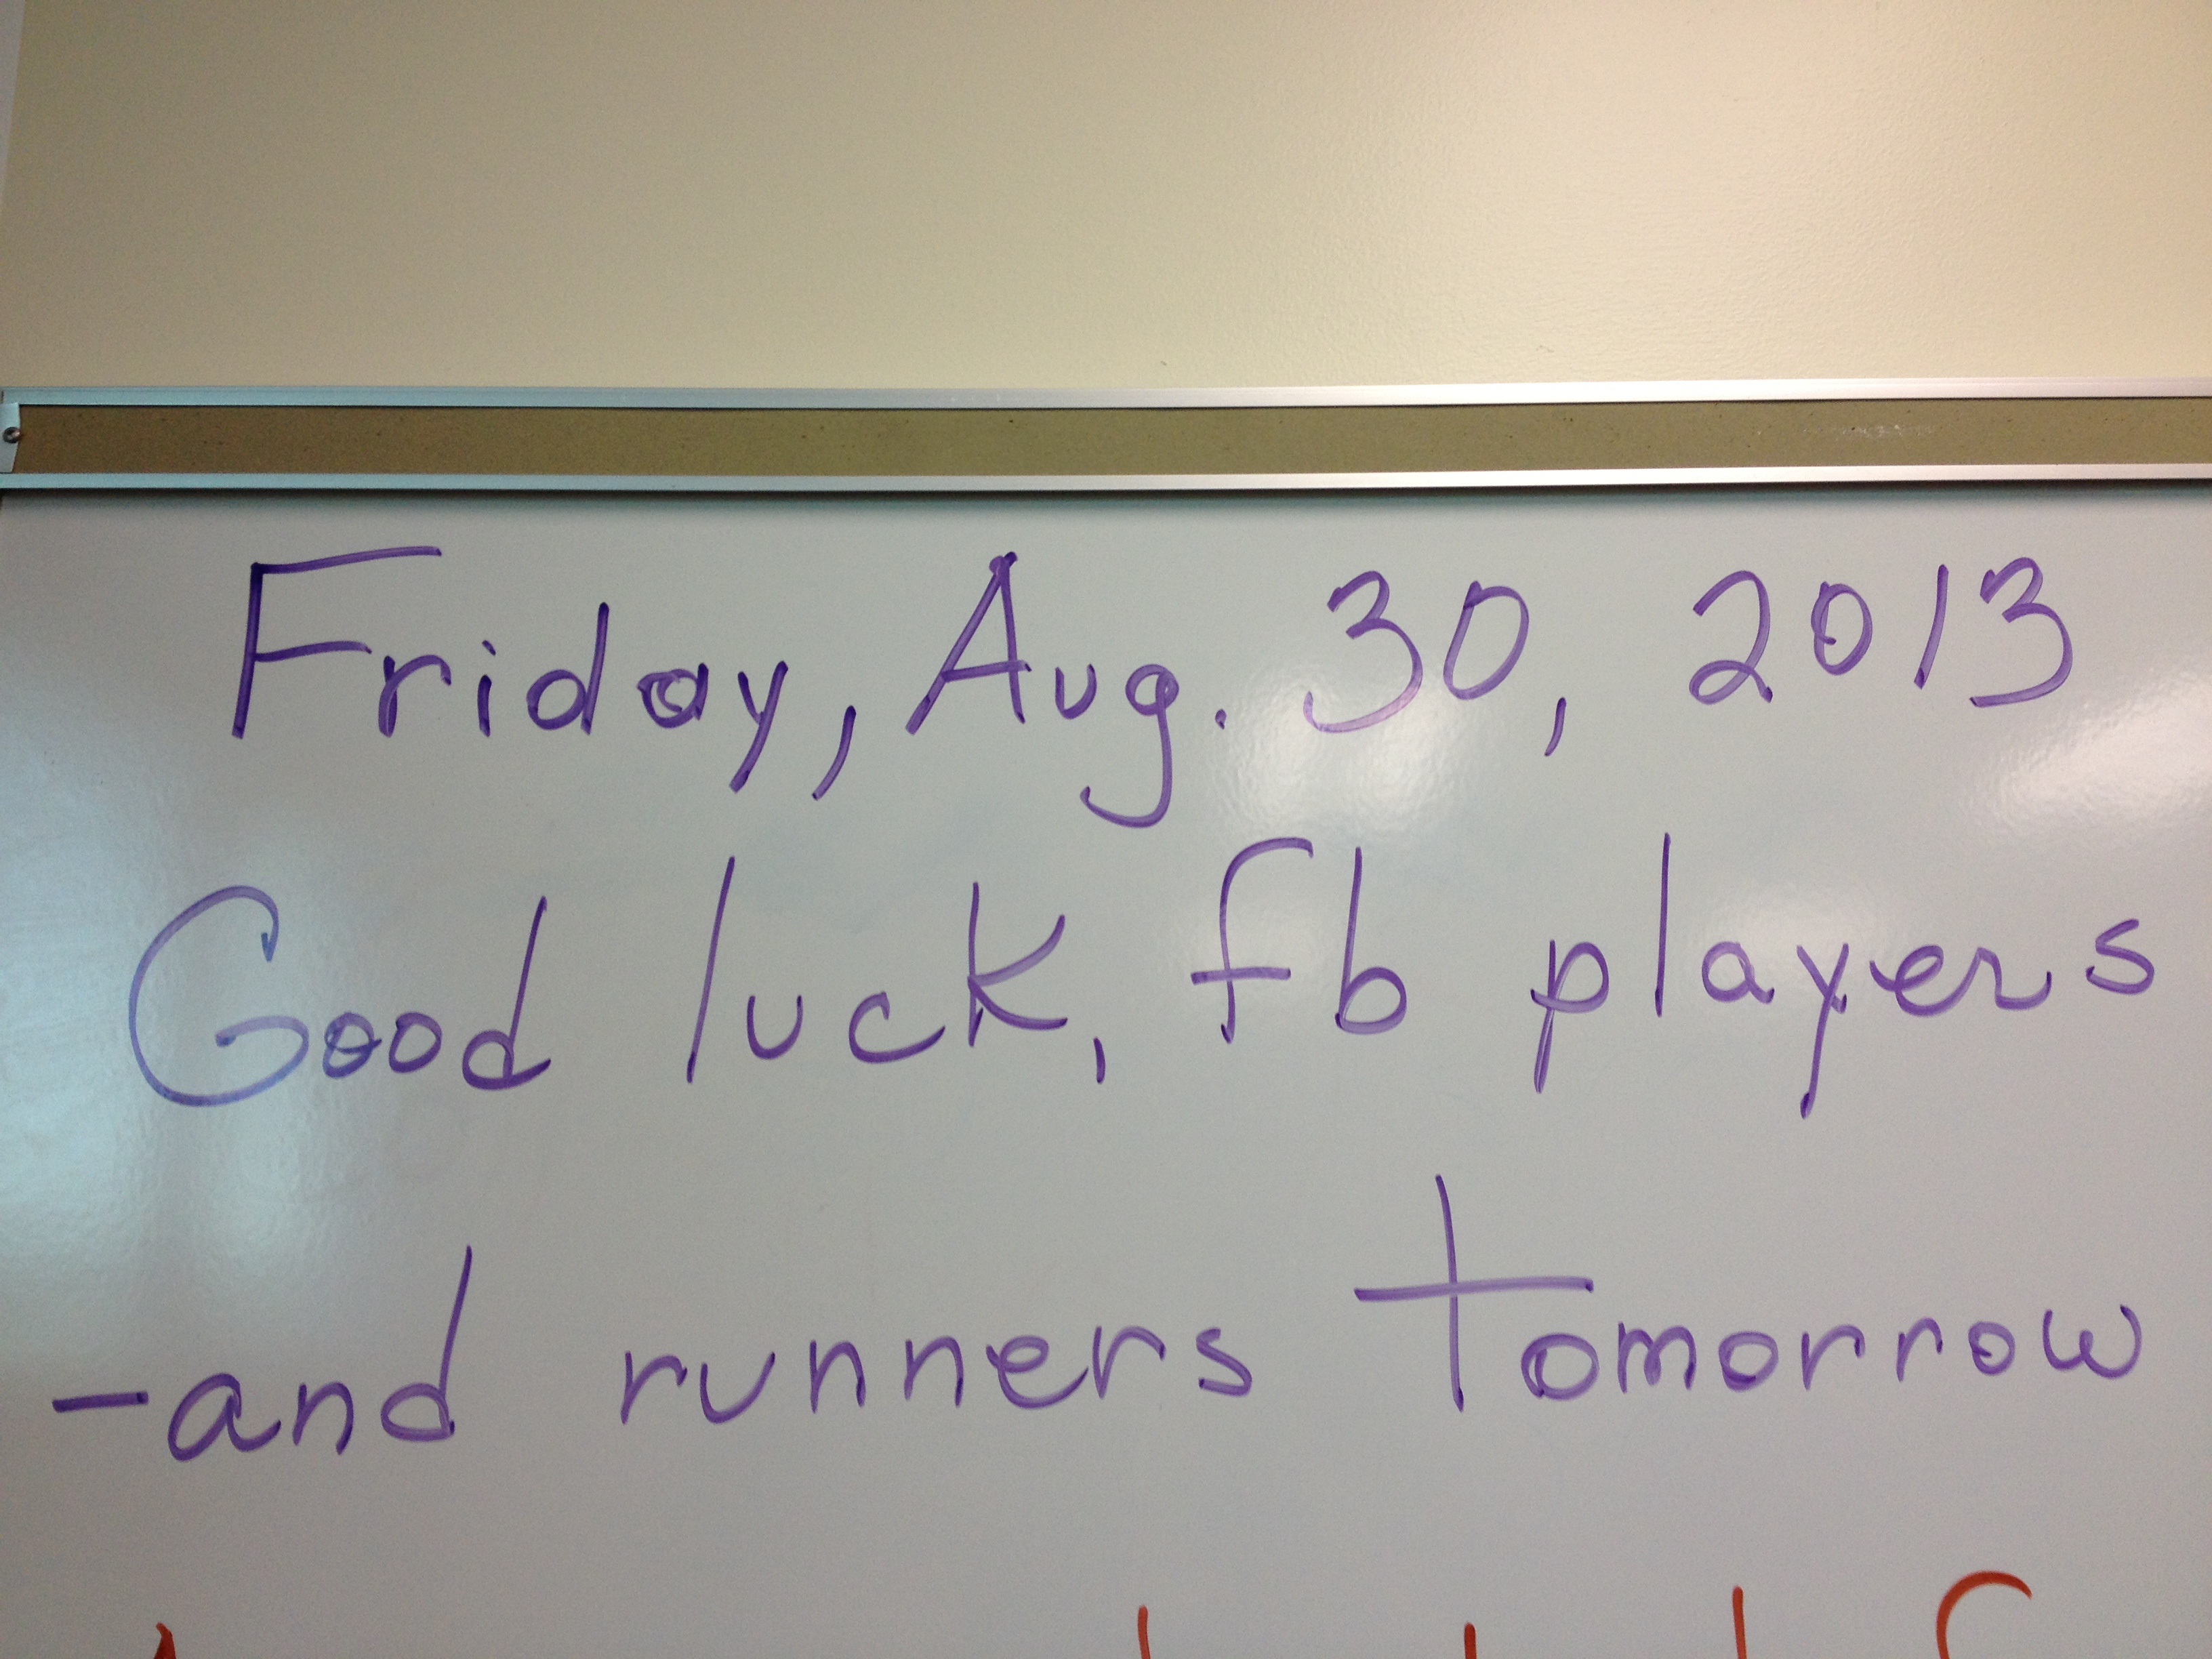 Friday, Aug. 30, 2013
Good luck, fb players
-and runners tomorrow